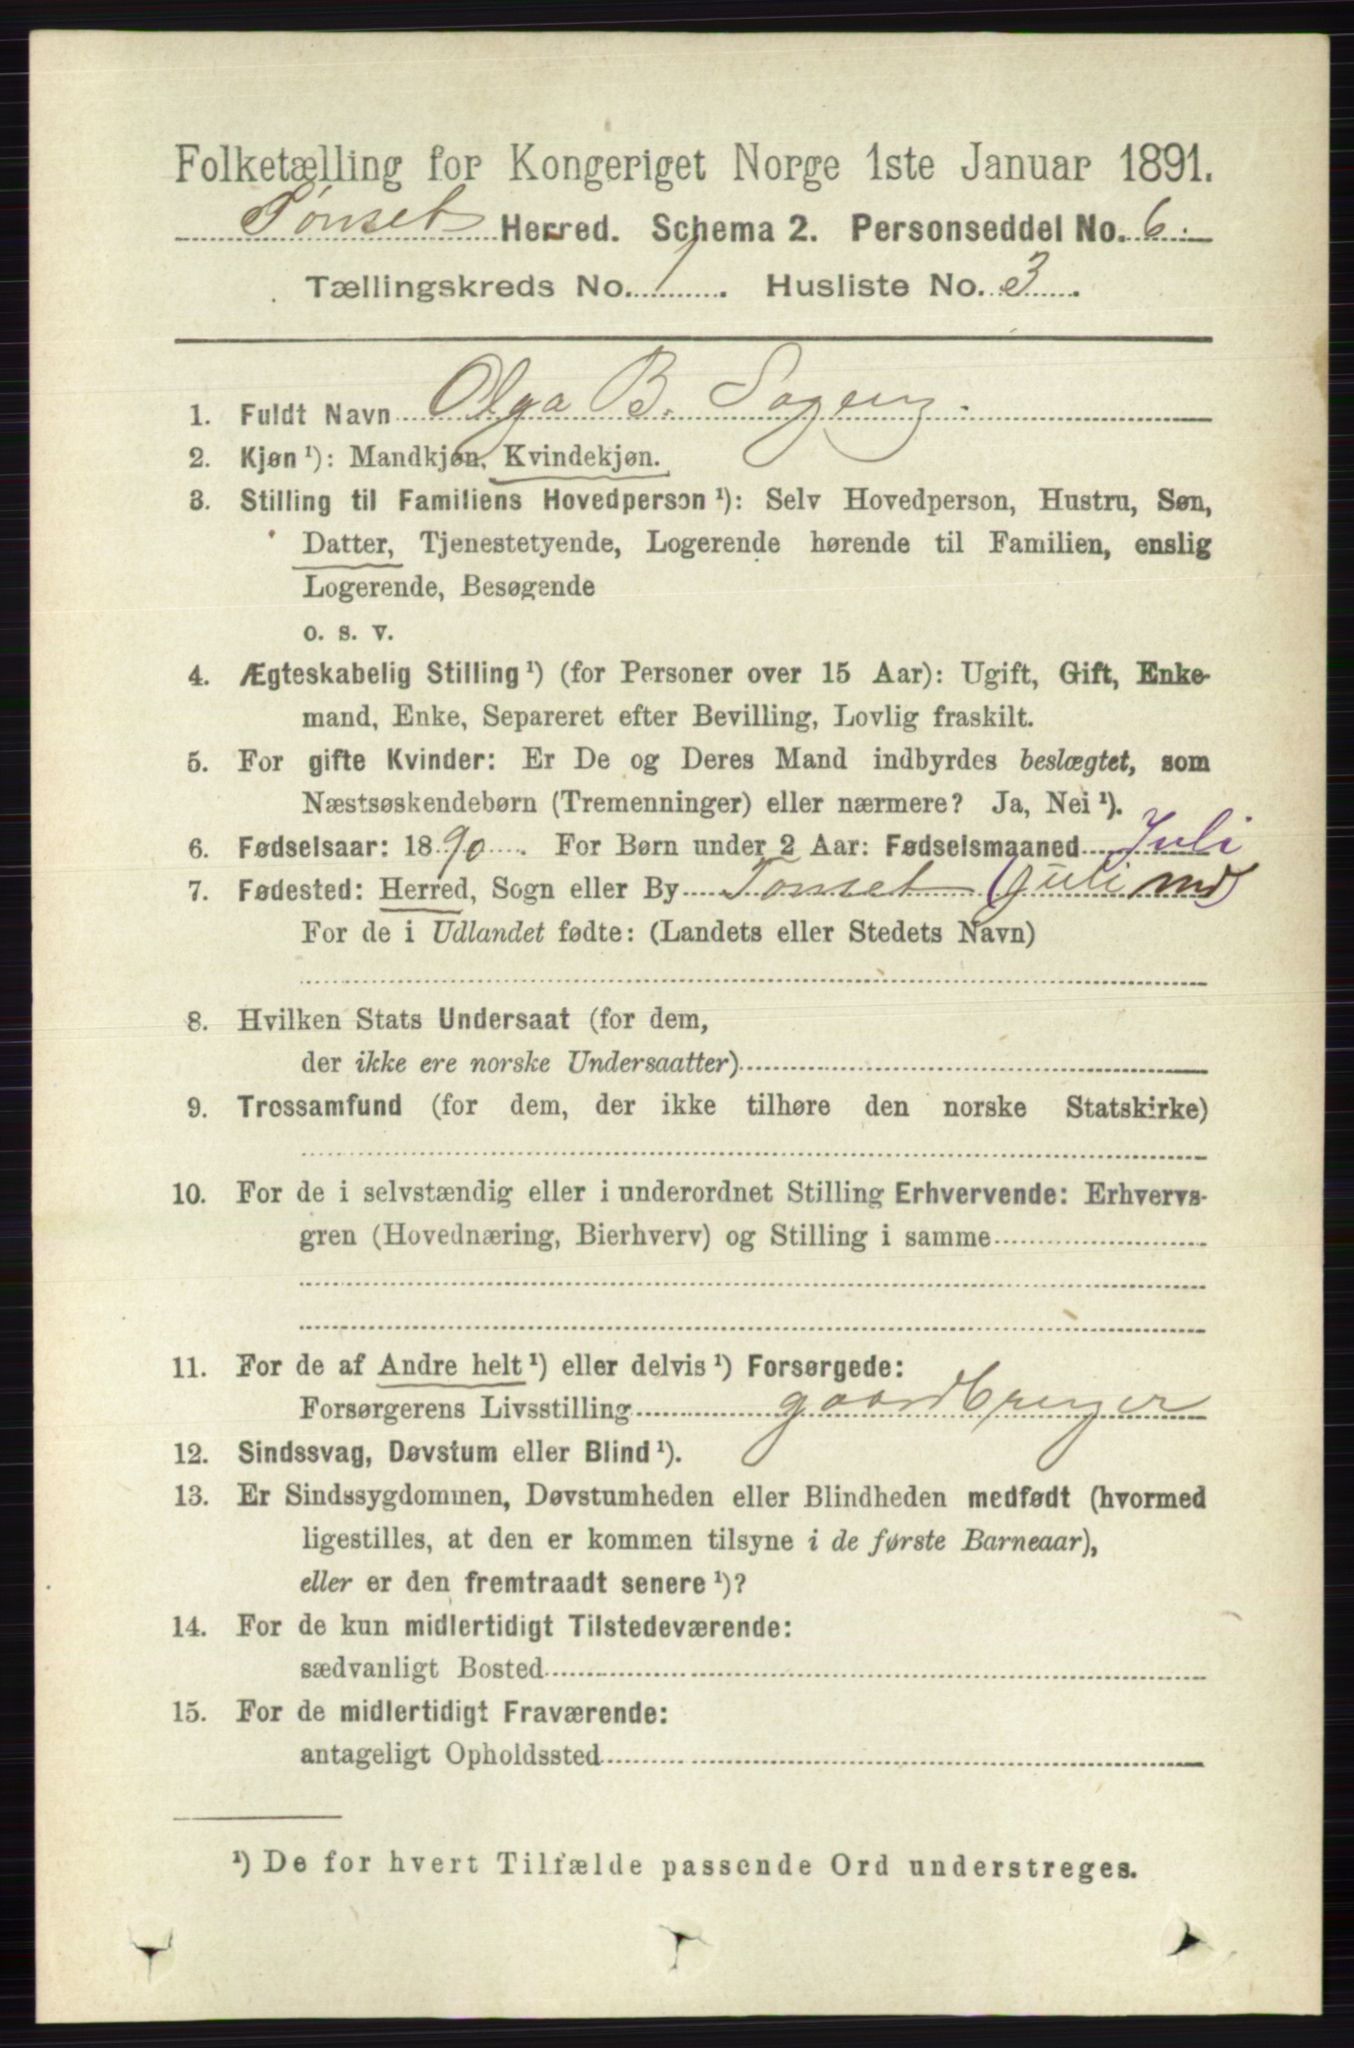 Folketælling for Kongeriget Norge 1ste Januar 1891.
Tønset Herred. Schema 2. Personseddel No. 6.
Tællingskreds No. 1. Husliste No. 3.
1. Fuldt Navn Olga B. Sageng.
2. Kjøn ¹): Mandkjøn, Kvindekjøn.
3. Stilling til Familiens Hovedperson ¹): Selv Hovedperson, Hustru, Søn,
Datter, Tjenestetyende, Logerende hørende til Familien, enslig
Logerende, Besøgende
o. s. v.
4. Ægteskabelig Stilling ¹) (for Personer over 15 Aar): Ugift, Gift, Enke-
mand, Enke, Separeret efter Bevilling, Lovlig fraskilt.
5. For gifte Kvinder: Er De og Deres Mand indbyrdes beslægtet, som
Næstsøskendebørn (Tremenninger) eller nærmere? Ja, Nei ¹).
6. Fødselsaar: 1890. For Børn under 2 Aar: Fødselsmaaned Juli
7. Fødested: Herred, Sogn eller By Tønset (Juli md)
For de i Udlandet fødte: (Landets eller Stedets Navn)
8. Hvilken Stats Undersaat (for dem,
der ikke ere norske Undersaatter)
9. Trossamfund (for dem, der ikke tilhøre den norske Statskirke)
10. For de i selvstændig eller i underordnet Stilling Erhvervende: Erhvervs-
gren (Hovednæring, Bierhverv) og Stilling i samme
11. For de af Andre helt ¹) eller delvis ¹) Forsørgede:
Forsørgerens Livsstilling gaardbruger
12. Sindssvag, Døvstum eller Blind ¹).
13. Er Sindssygdommen, Døvstumheden eller Blindheden medfødt (hvormed
ligestilles, at den er kommen tilsyne i de første Barneaar),
eller er den fremtraadt senere ¹)?
14. For de kun midlertidigt Tilstedeværende:
sædvanligt Bosted
15. For de midlertidigt Fraværende:
antageligt Opholdssted
¹) De for hvert Tilfælde passende Ord understreges.